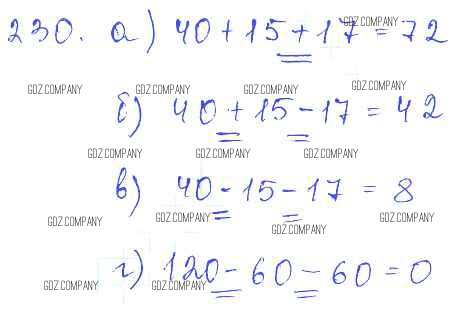 230. а) 40 + 15 + 17 = 72
GDZ.COMPANY
GDZ.COMPANY GDZ.COMPANY GDZ.COMPANY GDZ.COMPANY
б) 40 + 15 - 17 = 42
GDZ.COMPANY GDZ.COMPANY GDZ.COMPANY
в) 40 - 15 - 17 = 8
GDZ.COMPANY GDZ.COMPANY GDZ.COMPANY GDZ.COMPANY
г) 120 - 60 - 60 = 0
GDZ.COMPANY GDZ.COMPANY